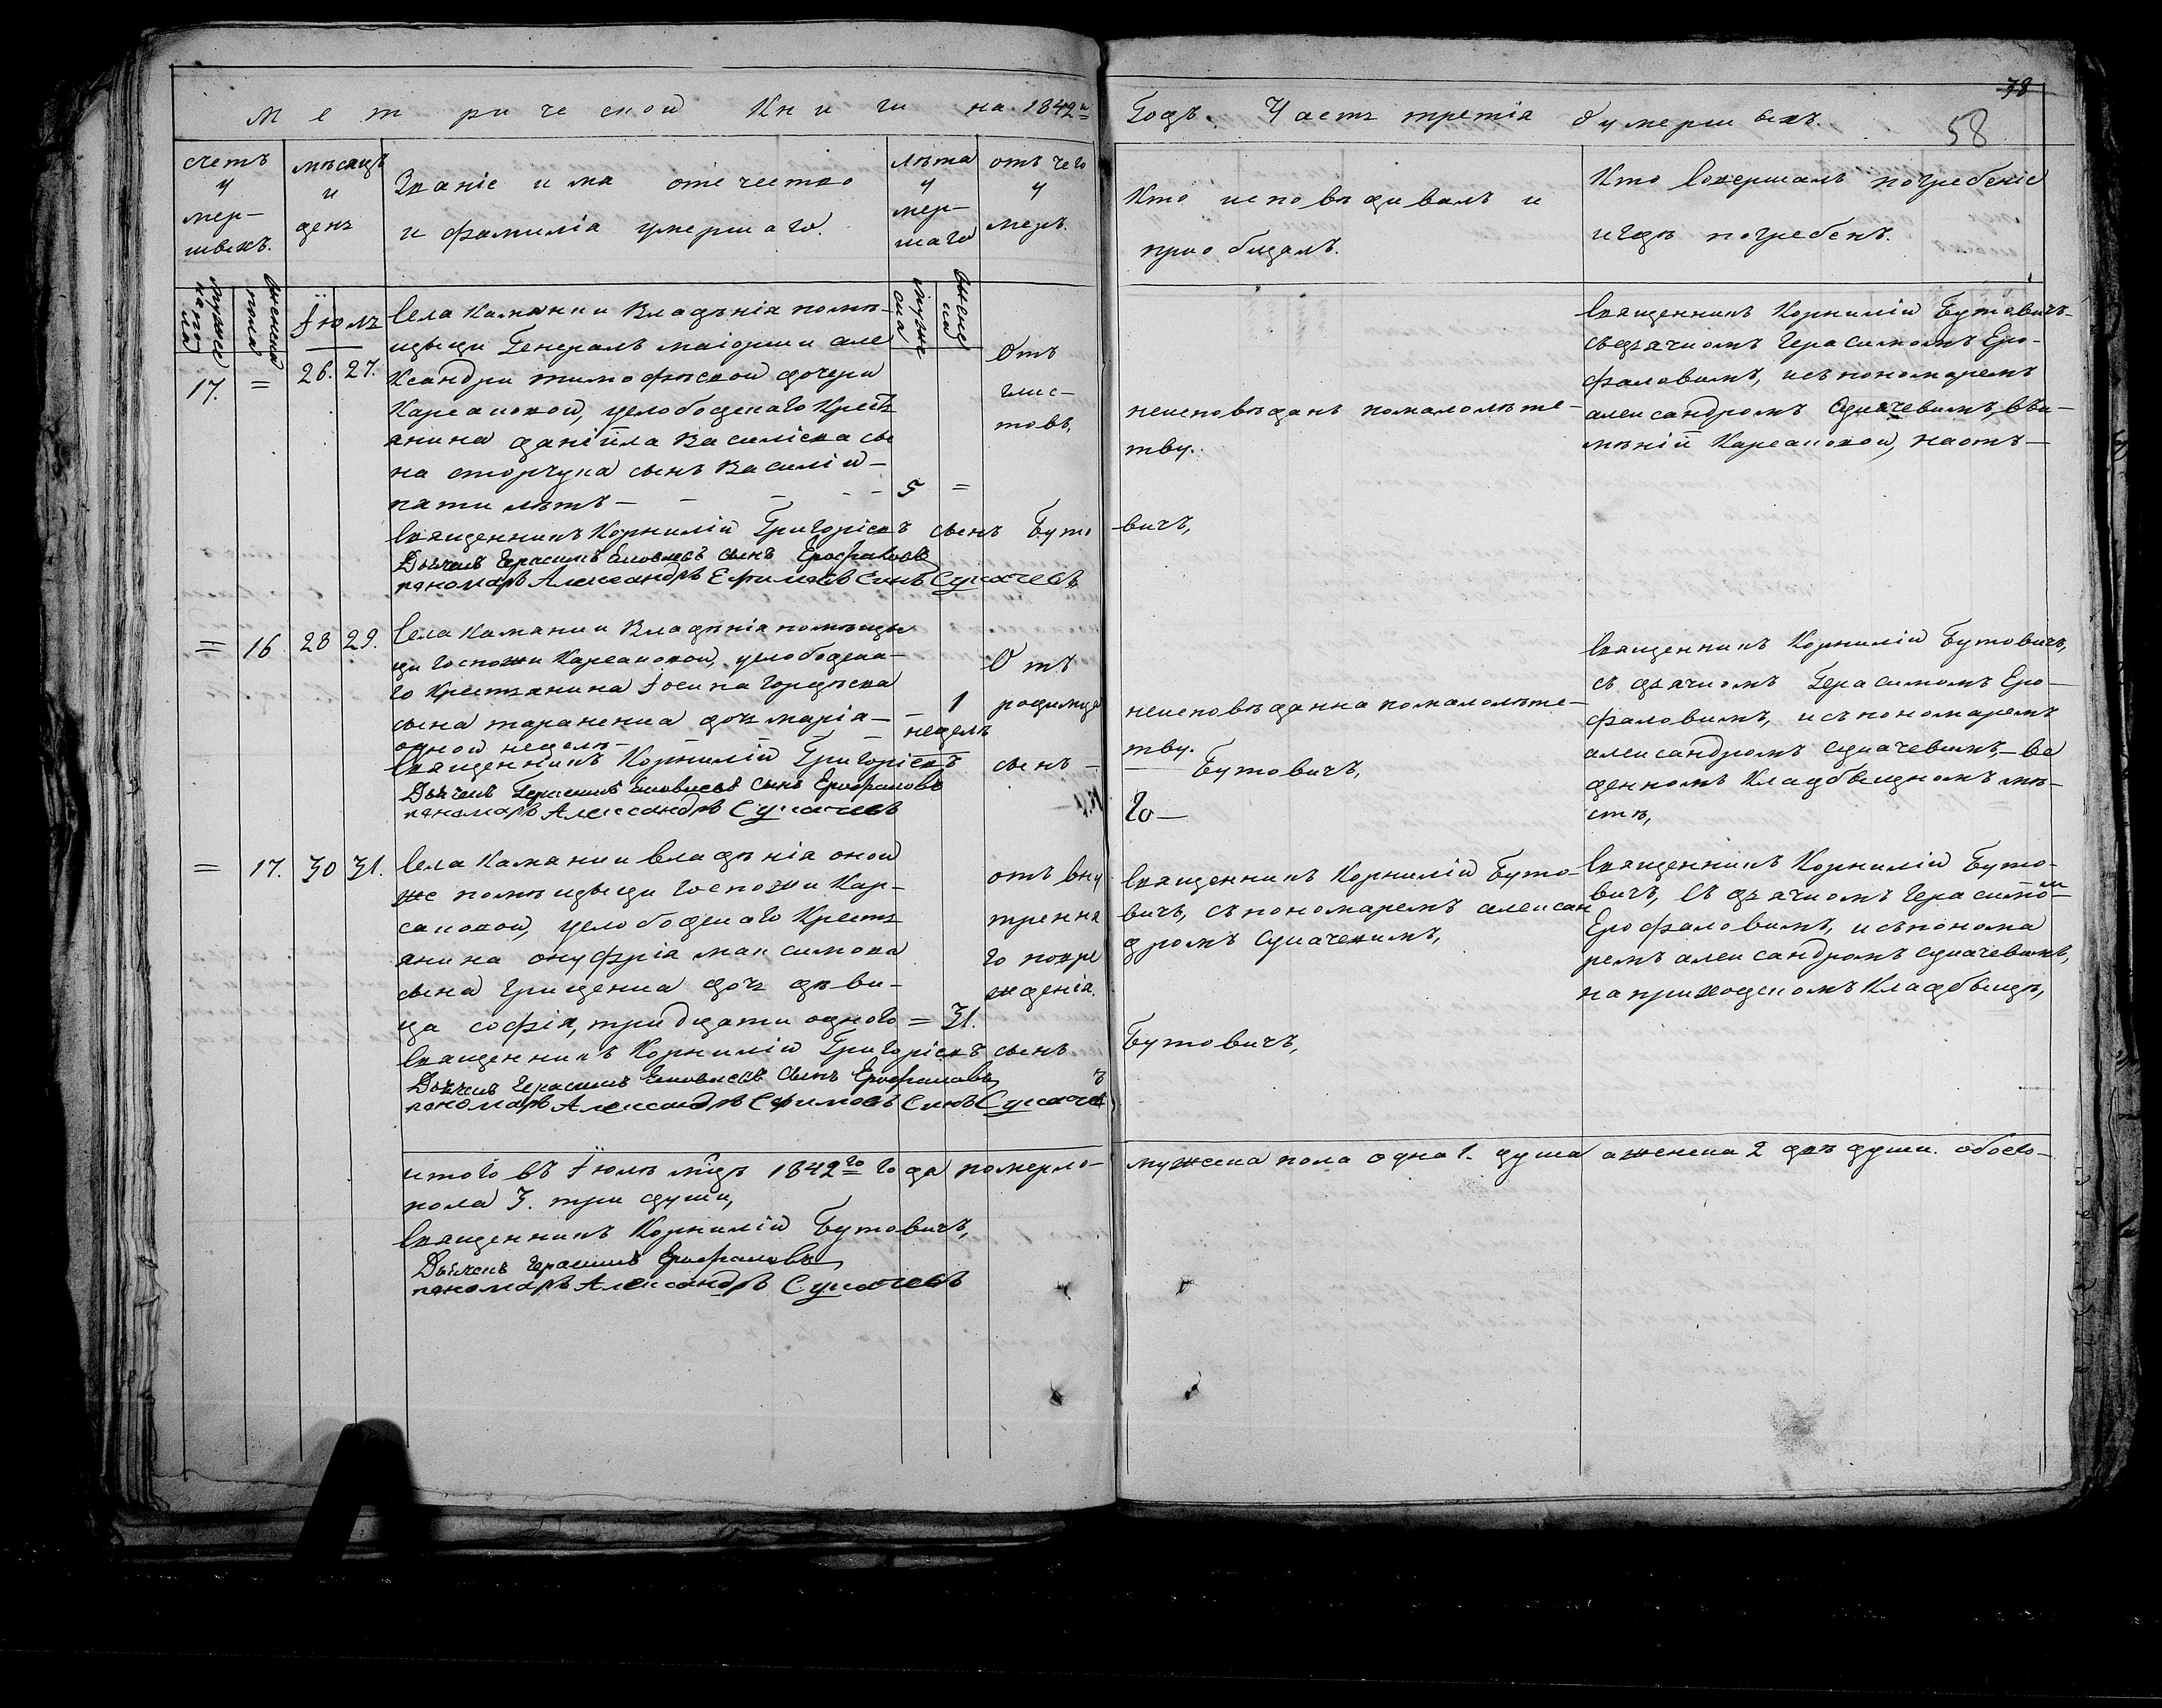 Метрической Книги на 1842й
Годъ. Часть третія оумершихъ.
38
58
счетъ
у
мер-
швихъ.
мѣсяцъ
и
день
Званіе има отечество
и фамиліа умершаго.
лѣта
у
мер-
шаго
отъ чего
у
меръ.
Кто исповѣдивалъ и
приобщалъ.
Кто совершалъ погребеніе
и гдѣ погребенъ.
мужеска пола
женска пола
мужеска
женска
Іюль
17.
=
26.
27.
Села Каманки Владѣнія помѣ-
щыци Генералъ маіорши але
ксандри тимофѣевой дочери
Карсаковой, усло боденаго Крест
янина даніила Василіева сы
на сторчука сынъ Василій-
пати лѣтъ -
5
=
Отъ
глис-
товъ,
неисповѣданъ помалолѣте-
тву.
Священникъ Корнилій Бутовичъ-
съ дячкомъ Герасимомъ Еро-
фаловимъ, исъ пономаремъ
александромъ Сукачевимъ, въи-
мѣніи Карсаковой, настѣ-
Священникъ Корнилій Григоріевъ сынъ Буто
вичъ,
Дьячекъ Герасимъ Яковлевъ сынъ Ерофаловъ
пономаръ Александръ Ефимовъ Синъ Сукачевъ
=
16
28
29.
Села Каманки Владѣнія помѣщы
ци госпожи Карсаковой, усло бодена-
го Крестянина Іосипа Гордѣева
сына тараненка дочь маріа-
одной недели-
1
недель
Отъ
родимца
неисповѣданна помалолѣте-
тву.
Священникъ Корнилій Бутовичъ,
съ дячкомъ Герасимомъ Еро-
фаловимъ, исъ пономаремъ
александромъ Сукачевимъ,- во
денномъ Кладбыщномъ мѣ-
стѣ,
Священникъ Корнилій Григоріевъ сынъ -
Бутовичъ,
Дьячекъ Герасимъ Яковлевъ сынъ Ерофаловъ
пономаръ Александръ Сукачевъ
го-
=
17.
30
31.
Села Каманки владѣнія оной
же помѣщыци госпожи Кар-
саковой, усло боденаго Крест
янина онуфріа максимова
сына Грищенка дочь дѣви-
ца софія, тридцати одного
= 31.
отъ вну
тренна
го повре
жденіа.
Священникъ Корнилій Буто-
вичъ, съ пономаремъ алексан
дромъ Сукачевимъ,
Священникъ Корнилій Буто-
вичъ, Съ дячкомъ Герасимомъ
Ерофаловимъ, исъ понома
ремъ александромъ Сукачевимъ,
на приходскомъ Кладбыщѣ,
Священникъ Корнилій Григоріевъ сынъ
Бутовичъ,
Дьячекъ Герасимъ Яковлевъ Сынъ Ерофаловъ
пономаръ Александръ Ефимовъ Синъ Сукачевъ
итого въ Іюлѣ мцѣ 1842го года померло-
мужеска пола одна 1. душа а женска 2 двѣ души. обоего-
пола 3. три души,
Священникъ Корнилій Бутовичъ,
Дьячекъ Герасимъ Ерофаловъ
пономаръ Александръ Сукачевъ